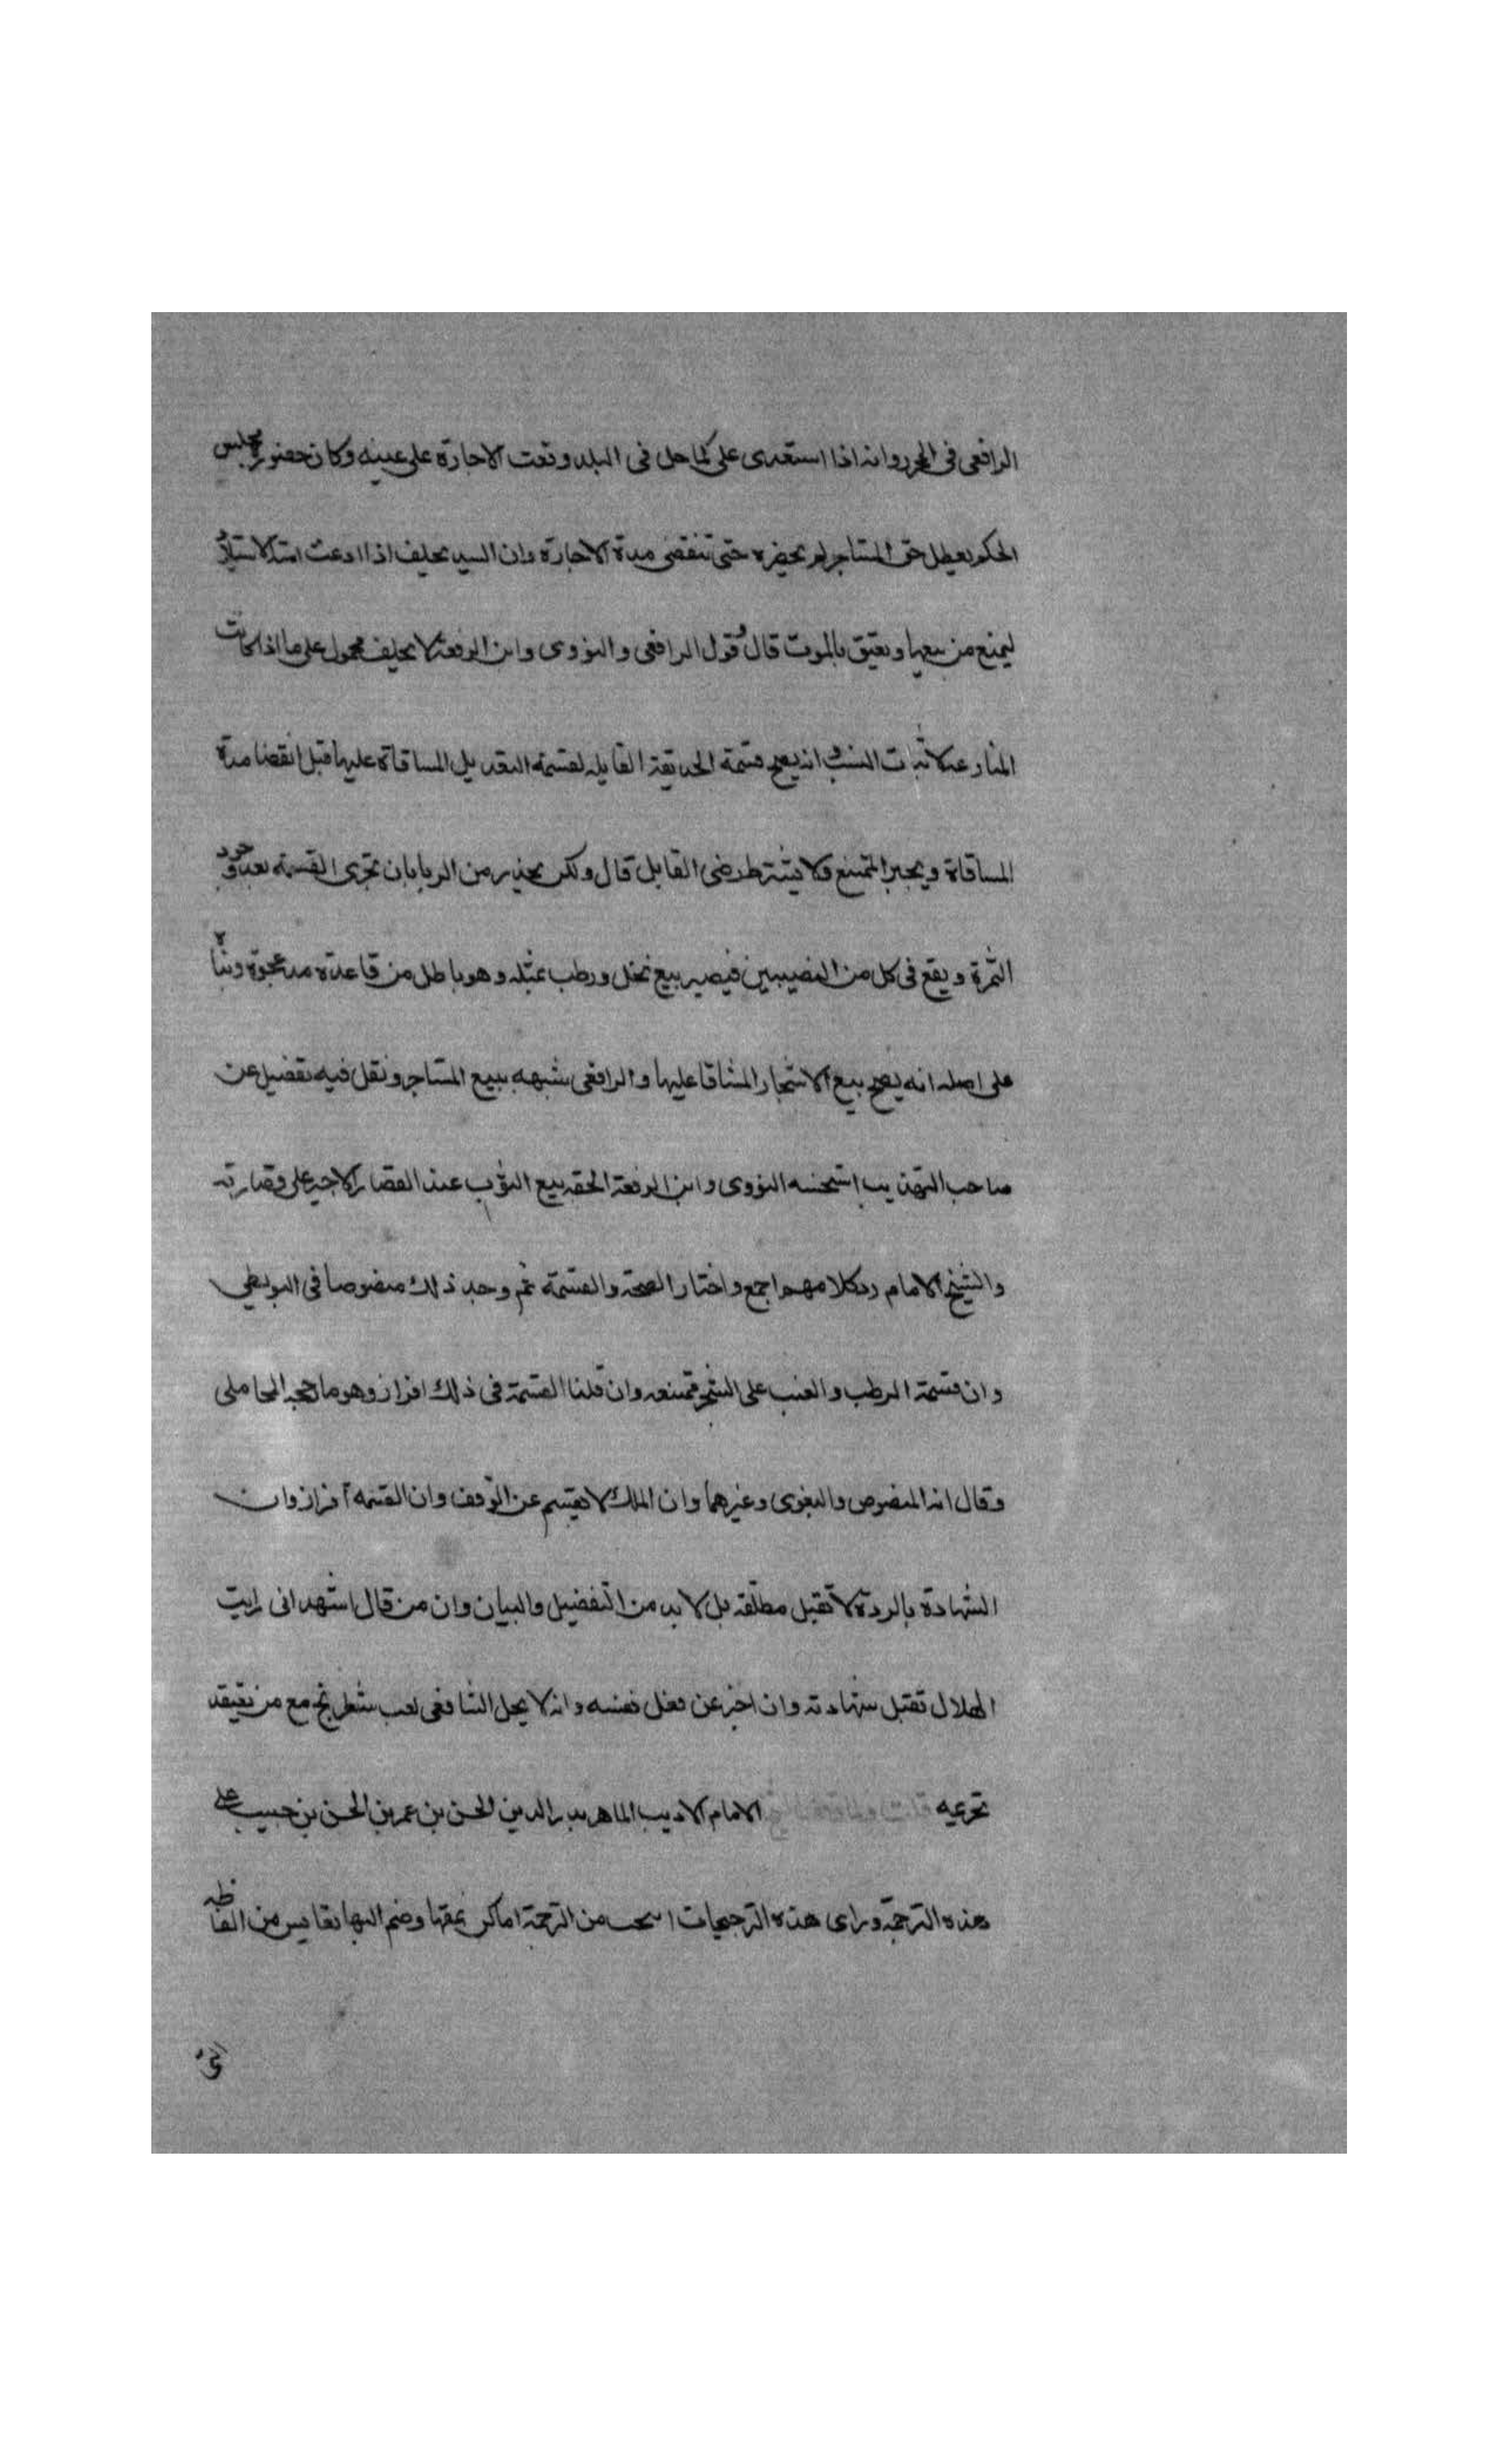 الرافعى فى المحرر وانه اذا استعدى على كامل فى البلد وقعت الاجارة على عينه وكان حضوره مجلس
الحكم يعطل حق المستاجر لم يحضره حتى تنقضى مدة الاجارة وان السيد يحلف اذا ادعت امته الاستيلاد
ليمنع من بيعها وتعتق بالموت قال وقول الرافعى والنووى وابن الرفعة لا يحلف محمول على ما اذا كانت
المنازعة لاثبات النسب وانه يصح قسمة الحديقة القابله لقسمة التعديل المساقاة عليها قبل انقضا مدة
المساقاة ويجبر الممتنع ولا يشترط رضى العامل قال ولكن يحذر من الربا بان تجرى القسمة بعد وجود
الثمرة ويقع فى كل من النصيبين فيصير بيع نخل ورطب بمثله وهو باطل من قاعدة مد عجوة وبنا
على اصله انه يصح بيع الاشجار المساقا عليها والرافعى شبهه ببيع المستاجر ونقل فيه تفصيل عن
صاحب التهذيب استحسنه النووى وابن الرفعة الحقه ببيع الثوب عند القصار الاجير على قصارته
والشيخ الامام رد كلامهم اجمع واختار الصحة والقسمة ثم وجد ذلك منصوصا فى البويطي
وان قسمة الرطب والعنب على الشجر ممتنعه وان قلنا القسمة فى ذلك افراز وهو ما رجحه المحاملى
وقال انه المنصوص والبغوى وغيرهما وان الملك لا يقسم عن الوقف وان القسمه افراز وان
الشهادة بالردة لا تقبل مطلقه بل لا بد من التفصيل والبيان وان من قال اشهد انى رايت
الهلال تقبل شهادته وان اخبر عن فعل نفسه وانه لا يحل الشافعى لعب شطرنج مع من يعتقد
تحريمه الامام الاديب الماهر بدر الدين الحسن بن عمر بن الحسن بن حبيب على
هذه الترجمة وراى هذه الترجيحات من الترجمة اماكن نمقها وضم اليها نفايس من الفاظه